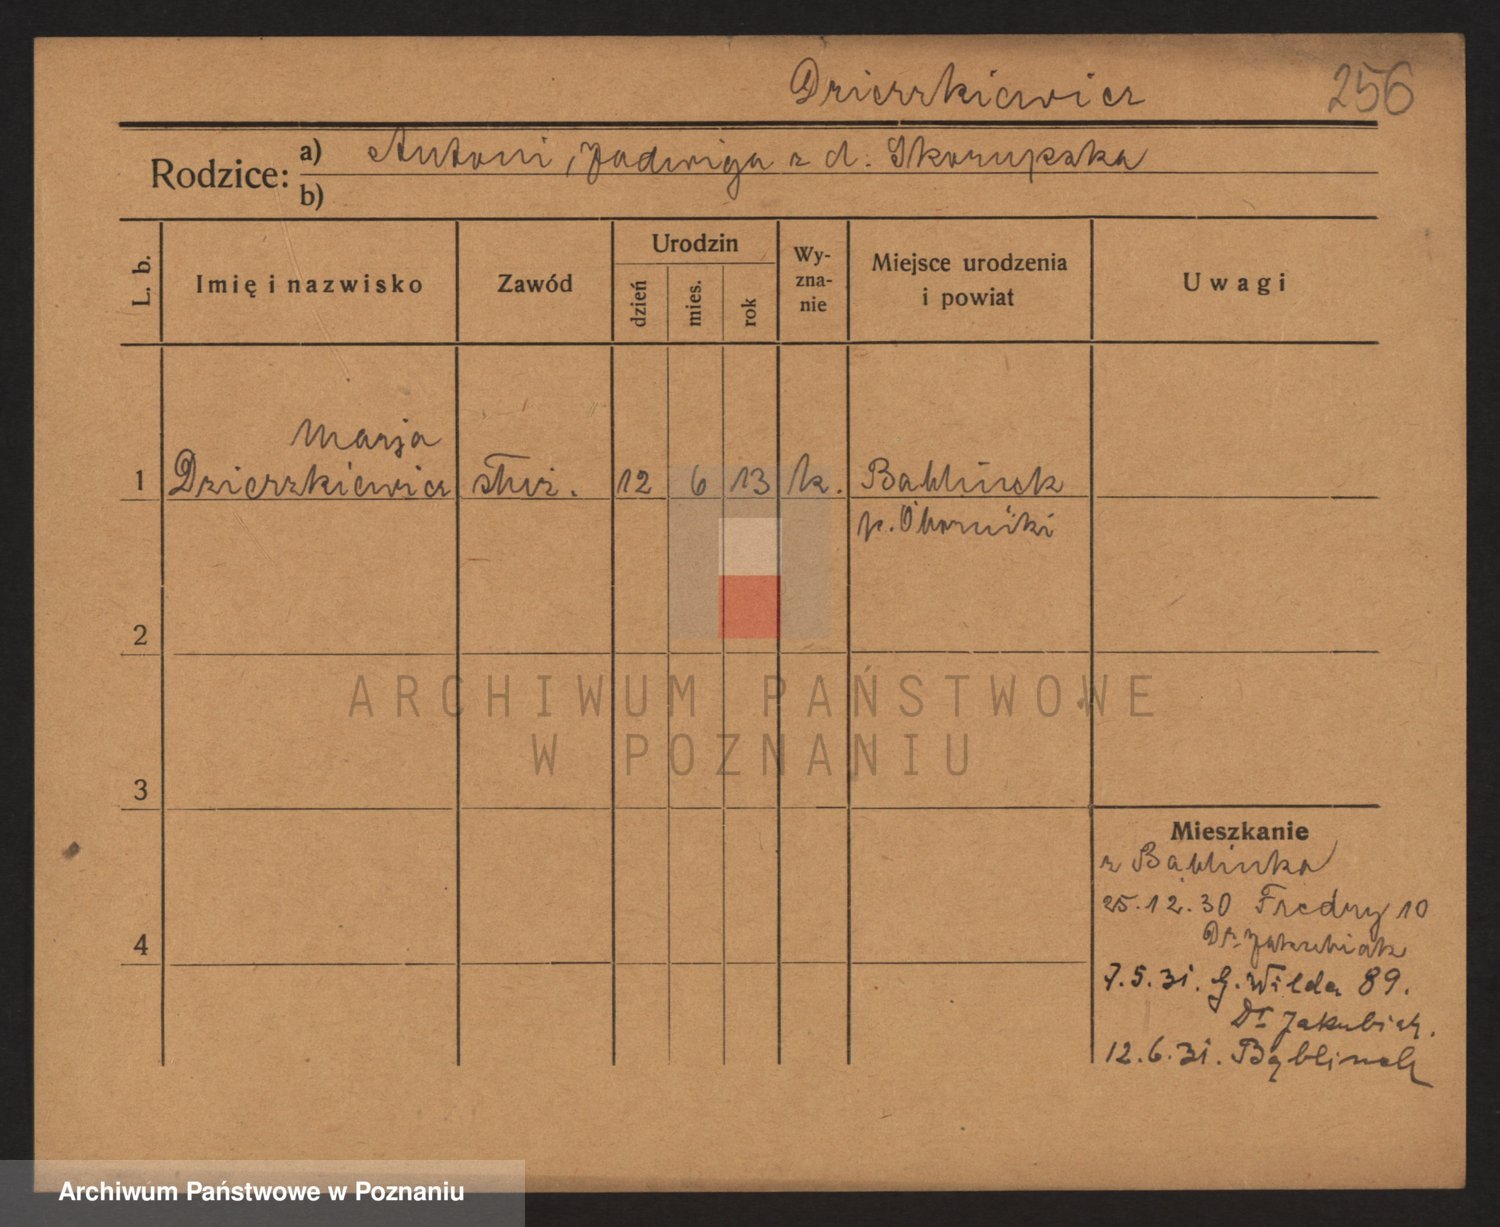 Dzierzkiewicz
256
Rodzice:
a) Antoni, Jadwiga z d. Skorupska
b)
L. b.
Imię i nazwisko
Zawód
Urodzin
dzień
mies.
rok
Wy-
zna-
nie
Miejsce urodzenia
i powiat
Uwagi
Marja
1 Dzierzkiewicz służ. 12 6 13 k. Bąblinek
p. Oborniki
2
ARCHIWUM PAŃSTWOWE
W POZNANIU
3
Mieszkanie
z Bąblinka
25.12.30 Fredry 10
Dr. Jakubiak
4
7.5.31. G. Wilda 89.
Dr Jakubiak.
12.6.31. Bąblinek
Archiwum Państwowe w Poznaniu